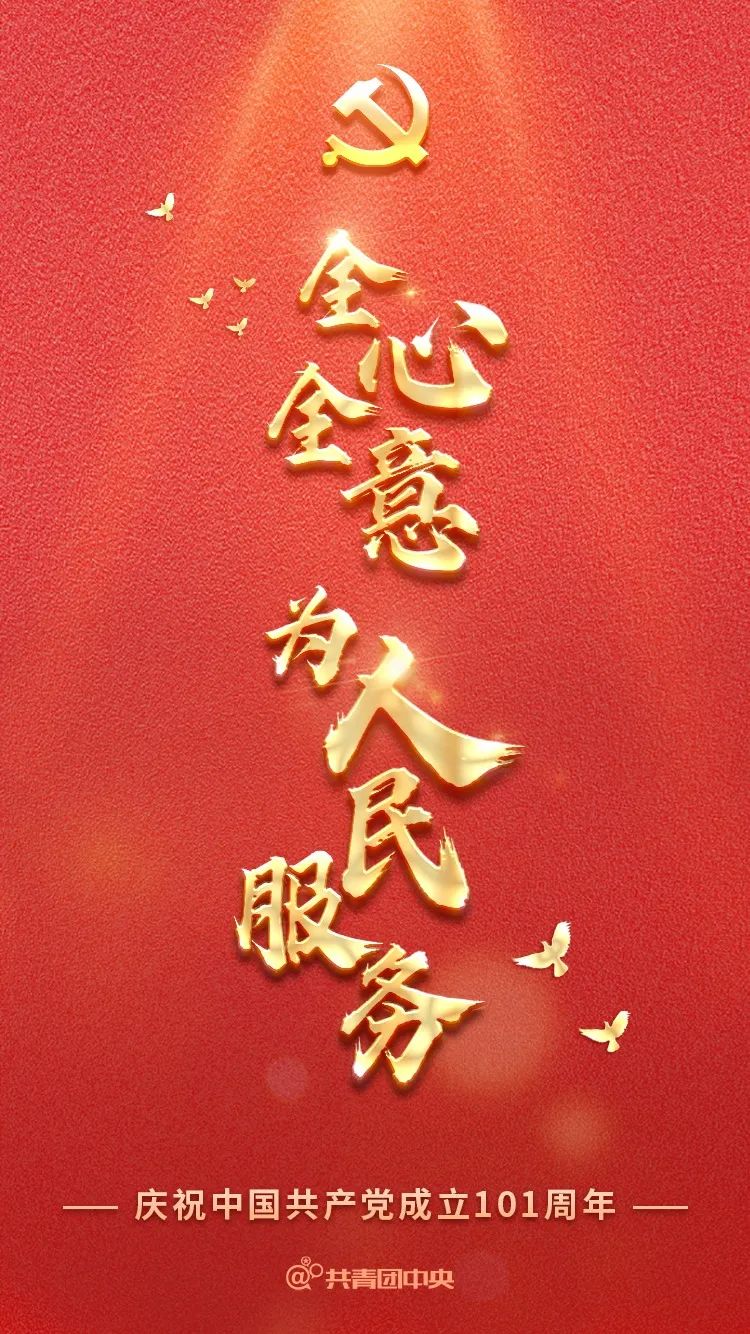 全心全意
为人民
服务
庆祝中国共产党成立101周年
@共青团中央